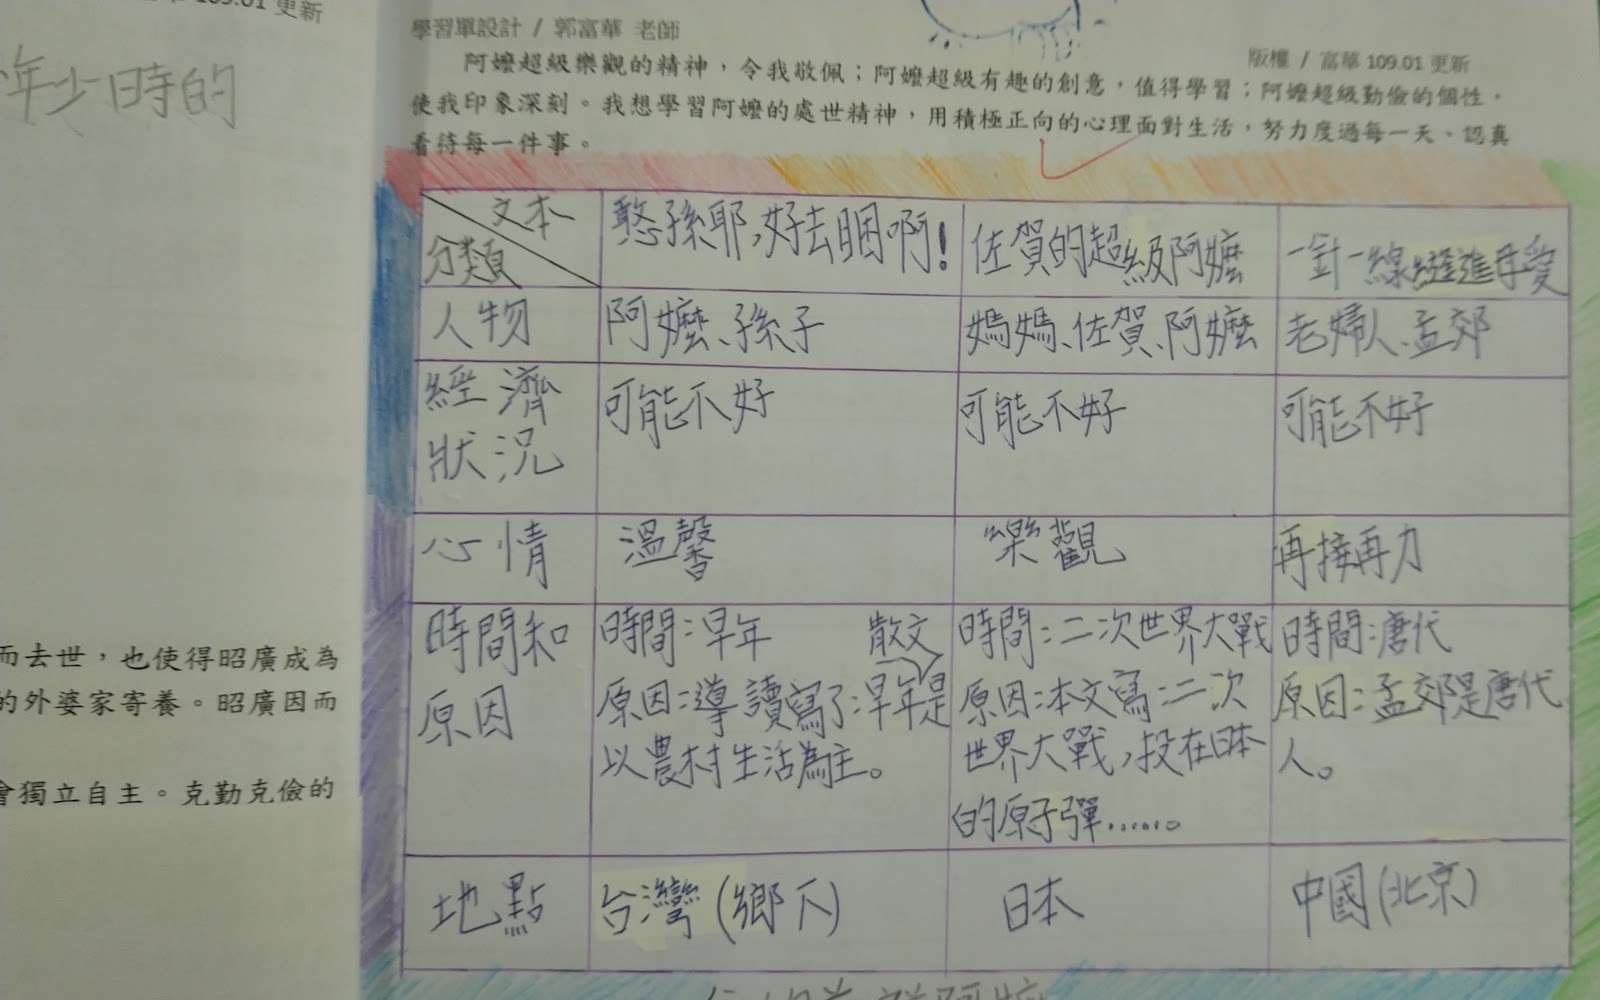 109.01 更新
年少時的
而去世，也使得昭廣成為
的外婆家寄養。昭廣因而
會獨立自主。克勤克儉的
學習單設計 / 郭富華 老師
版權 / 富華 109.01 更新
阿嬤超級樂觀的精神，令我敬佩；阿嬤超級有趣的創意，值得學習；阿嬤超級勤儉的個性，
使我印象深刻。我想學習阿嬤的處世精神，用積極正向的心理面對生活，努力度過每一天、認真
看待每一件事。
文本
分類
憨孫耶，好去睏啊！
佐賀的超級阿嬤
一針一線縫進母愛
人物
阿嬤、孫子
媽媽、佐賀、阿嬤
老婦人、孟郊
經濟
狀況
可能不好
可能不好
可能不好
心情
溫馨
樂觀
再接再力
時間和
原因
時間：早年
散文
原因：導讀寫了：早年是
以農村生活為主。
時間：二次世界大戰
原因：本文寫：二次
世界大戰，投在日本
的原子彈……
時間：唐代
原因：孟郊是唐代
人。
地點
台灣(鄉下)
日本
中國(北京)